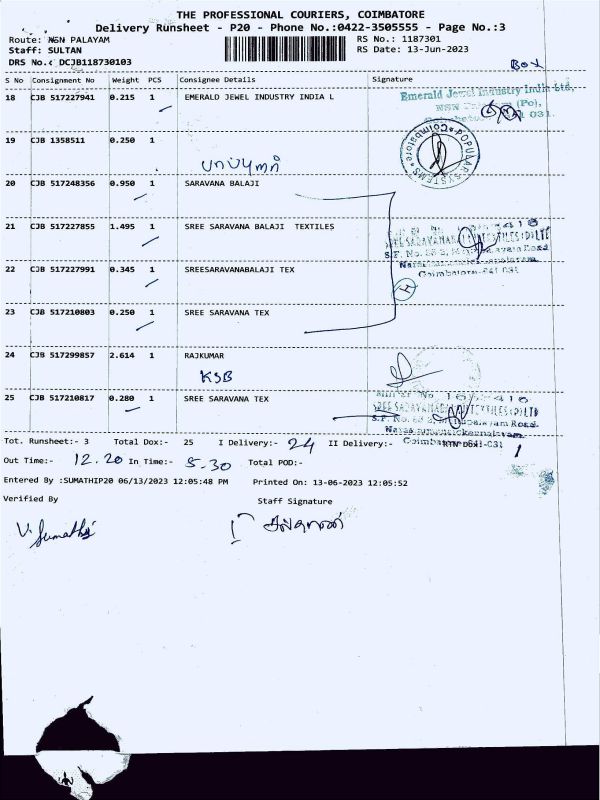 THE PROFESSIONAL COURIERS, COIMBATORE
Delivery Runsheet - P20 - Phone No.:0422-3505555 - Page No.:3
Route: NGN PALAYAM RS No.: 1187301
Staff: SULTAN RS Date: 13-Jun-2023
DRS No.: DCJB118730103
Box
S No Consignment No Weight PCS Consignee Details Signature
18 CJB 517227941 0.215 1 EMERALD JEWEL INDUSTRY INDIA L
Emerald Jewel Industry India Ltd.
19 CJB 1358511 0.250 1
பாப்புலர்
POPULAR SYSTEMS Coimbatore
20 CJB 517248356 0.950 1 SARAVANA BALAJI
21 CJB 517227855 1.495 1 SREE SARAVANA BALAJI TEXTILES
22 CJB 517227991 0.345 1 SREESARAVANABALAJI TEX
Coimbatore-641 031
4
23 CJB 517210803 0.250 1 SREE SARAVANA TEX
24 CJB 517299857 2.614 1 RAJKUMAR
KSB
25 CJB 517210817 0.280 1 SREE SARAVANA TEX
Tot. Runsheet:- 3 Total Dox:- 25 I Delivery:- 24 II Delivery:- RTN Dox:- 1
Out Time:- 12.20 In Time:- 5.30 Total POD:-
Entered By :SUMATHIP20 06/13/2023 12:05:48 PM Printed On: 13-06-2023 12:05:52
Verified By Staff Signature
V. Sumathi